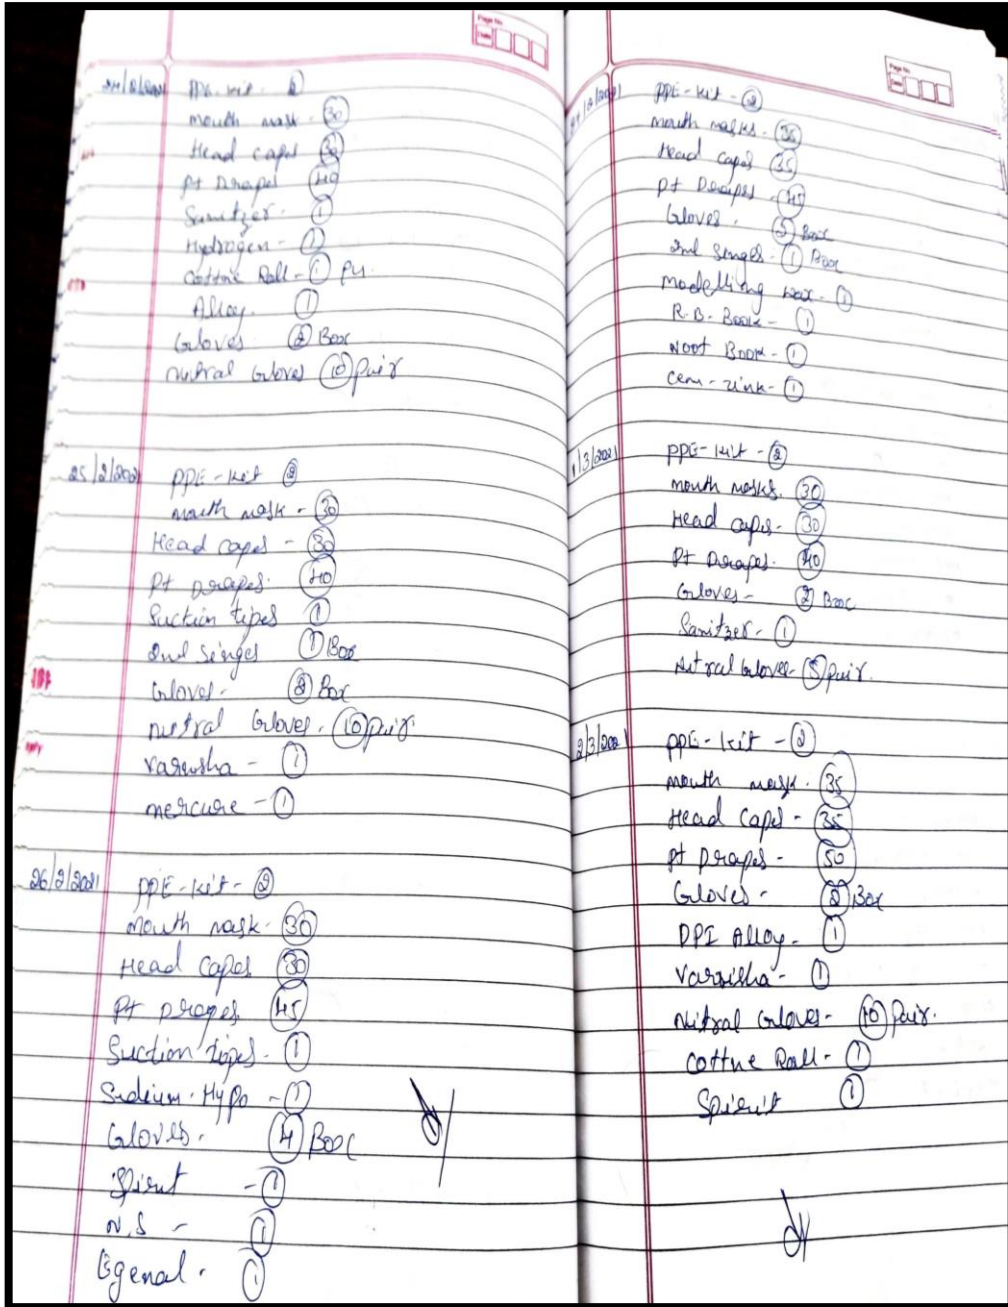 Page No
Date
24/2/2021 PPE-kit - 2
mouth mask - 30
Head capes 30
Pt Drapes 40
Sanitzer - 1
Hydrogen - 1
Cottne Roll - 1 Pu.
Alloy. 1
Gloves 2 Box
nutral Gloves 10 pair
25/2/2021 PPE-kit 2
mouth mask - 30
Head capes - 30
Pt Drapes. 40
Suction tipes 1
2nd Singes 1 Box
Gloves - 2 Box
nutral Gloves. 10 pair
Varnisha - 1
mercure - 1
26/2/2021 PPE-kit - 2
mouth mask - 30
Head Capes 30
Pt Drapes 45
Suction tipes - 1
Sudium. Hypo - 1
Gloves. 4 Box
Spirut - 1
N.S - 1
Egenal. 1
Page No
Date
/2/2021 PPE-kit - 2
mouth masks. 35
Head capes 35
Pt Drapes - 45
Gloves. 2 Box
2nd Singes - 1 Box
modelling wax - 1
R.B. Book - 1
Noot Book - 1
Cem - zink - 1
1/3/2021 PPE-kit - 2
mouth masks. 30
Head capes - 30
Pt Drapes. 40
Gloves - 2 Box
Sanitzer - 1
Nutral Gloves - 5 pair.
2/3/2021 PPE-kit - 2
mouth mask. 35
Head Capes - 35
Pt Drapes - 50
Gloves - 2 Box
DPI Alloy - 1
Varnisha - 1
Nutral Gloves - 10 pair.
Cottne Roll - 1
Spirit 1